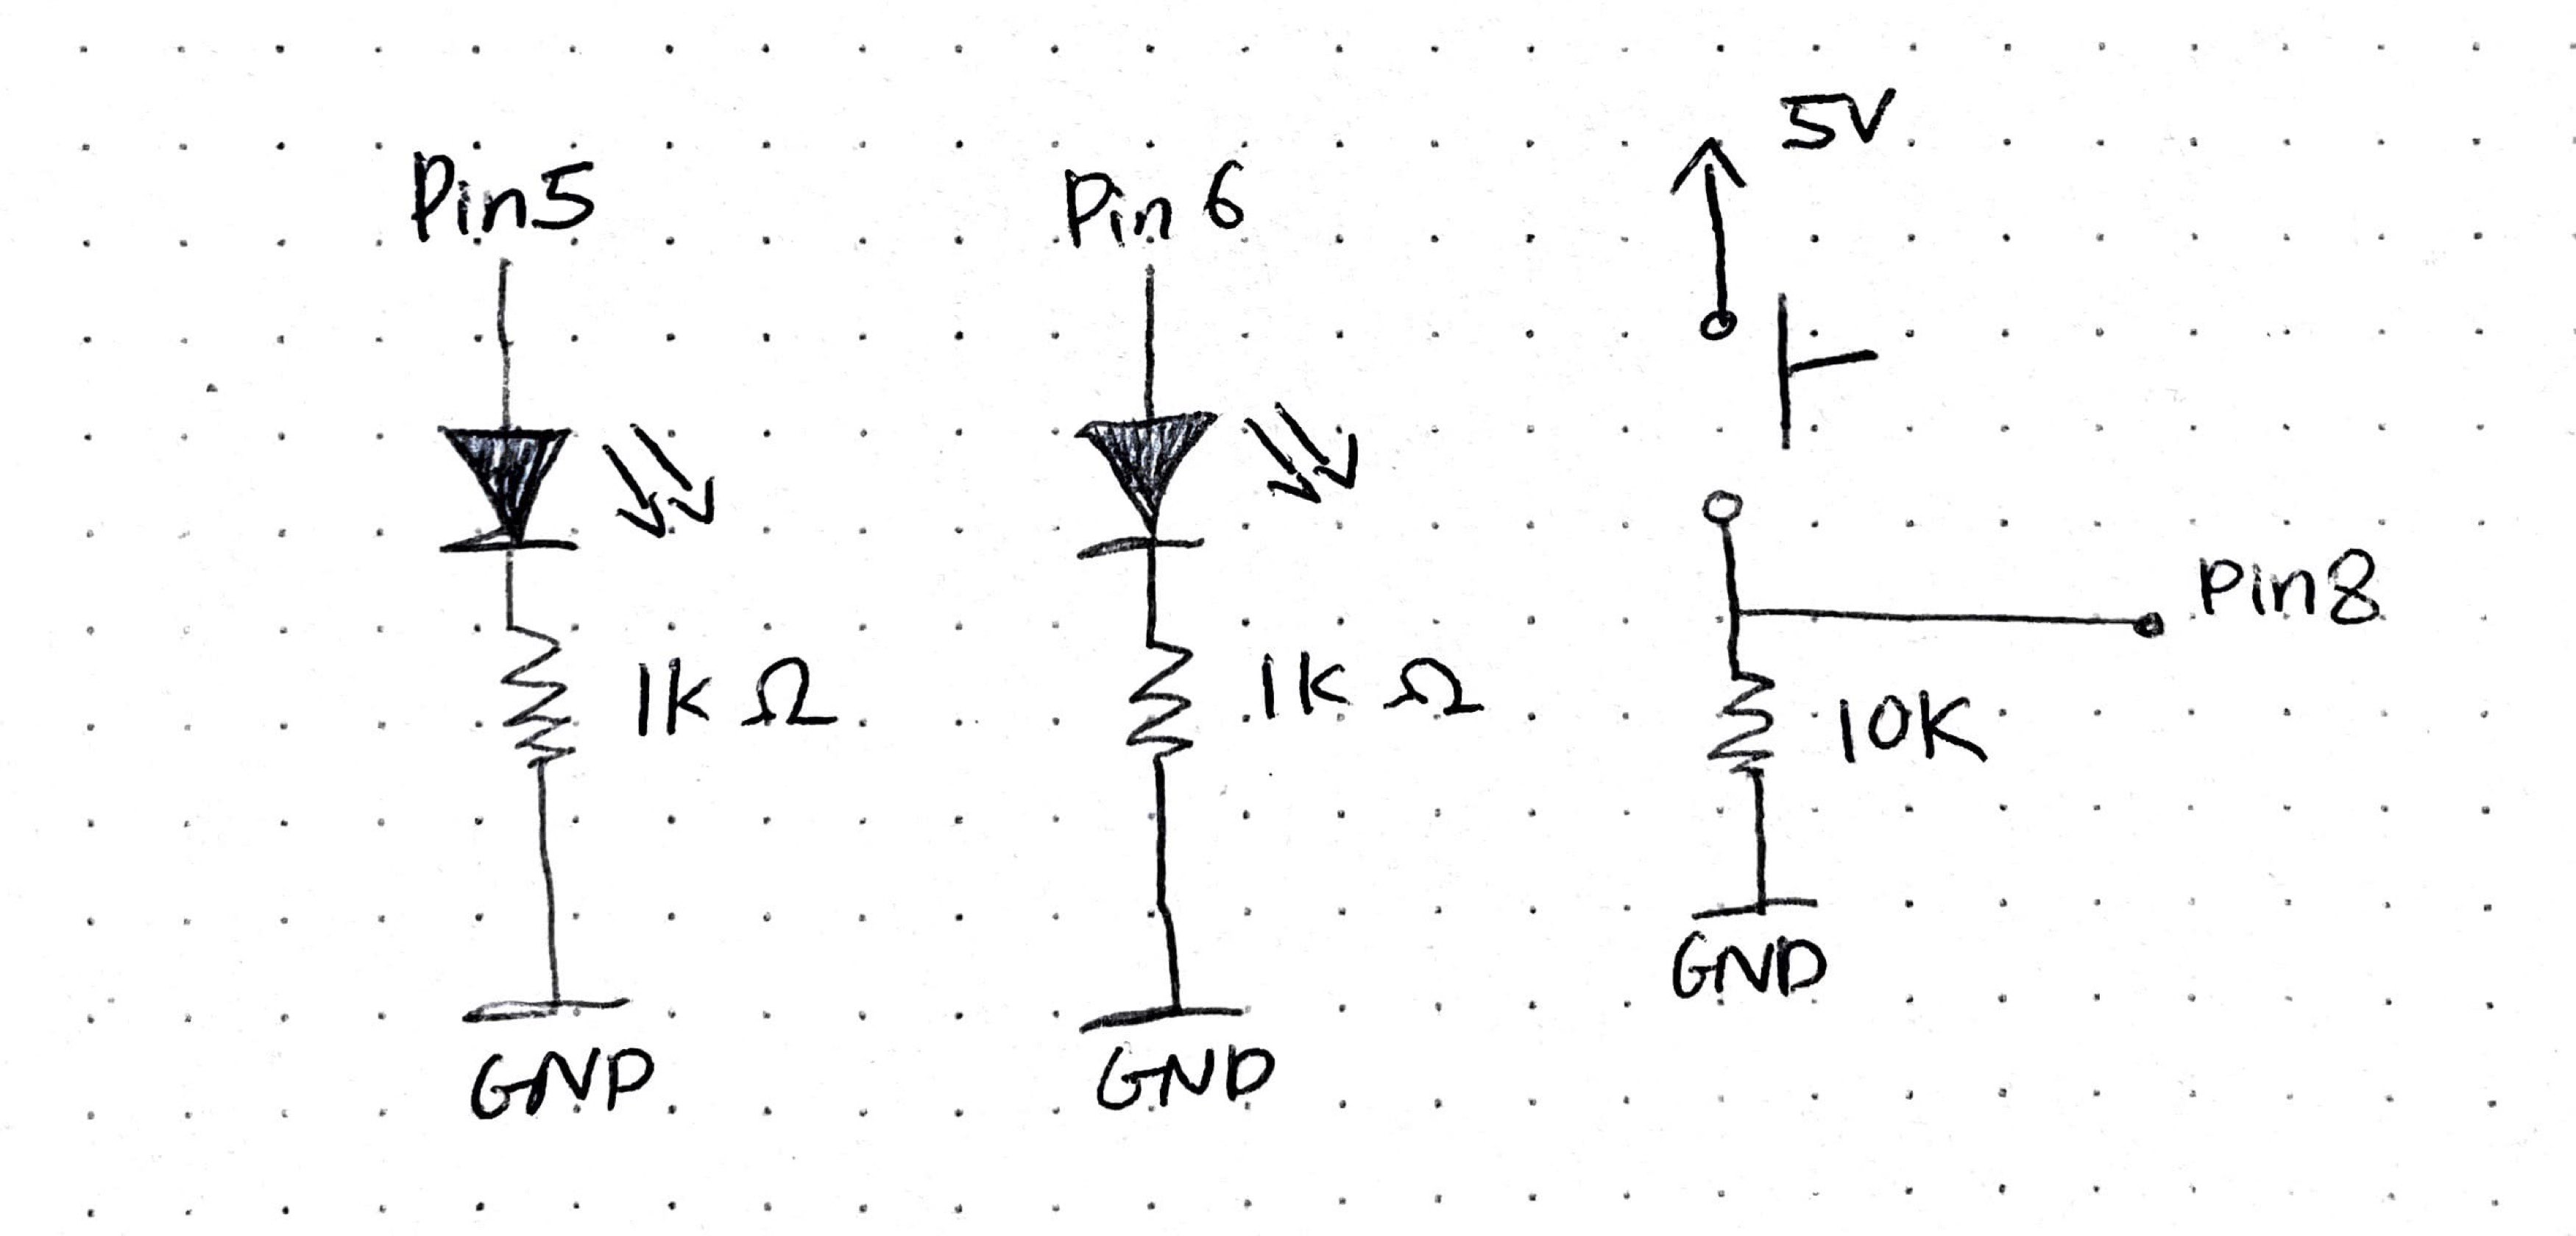 Pin5
1k Ω
GND
Pin 6
1K Ω
GND
5V
Pin8
10K
GND